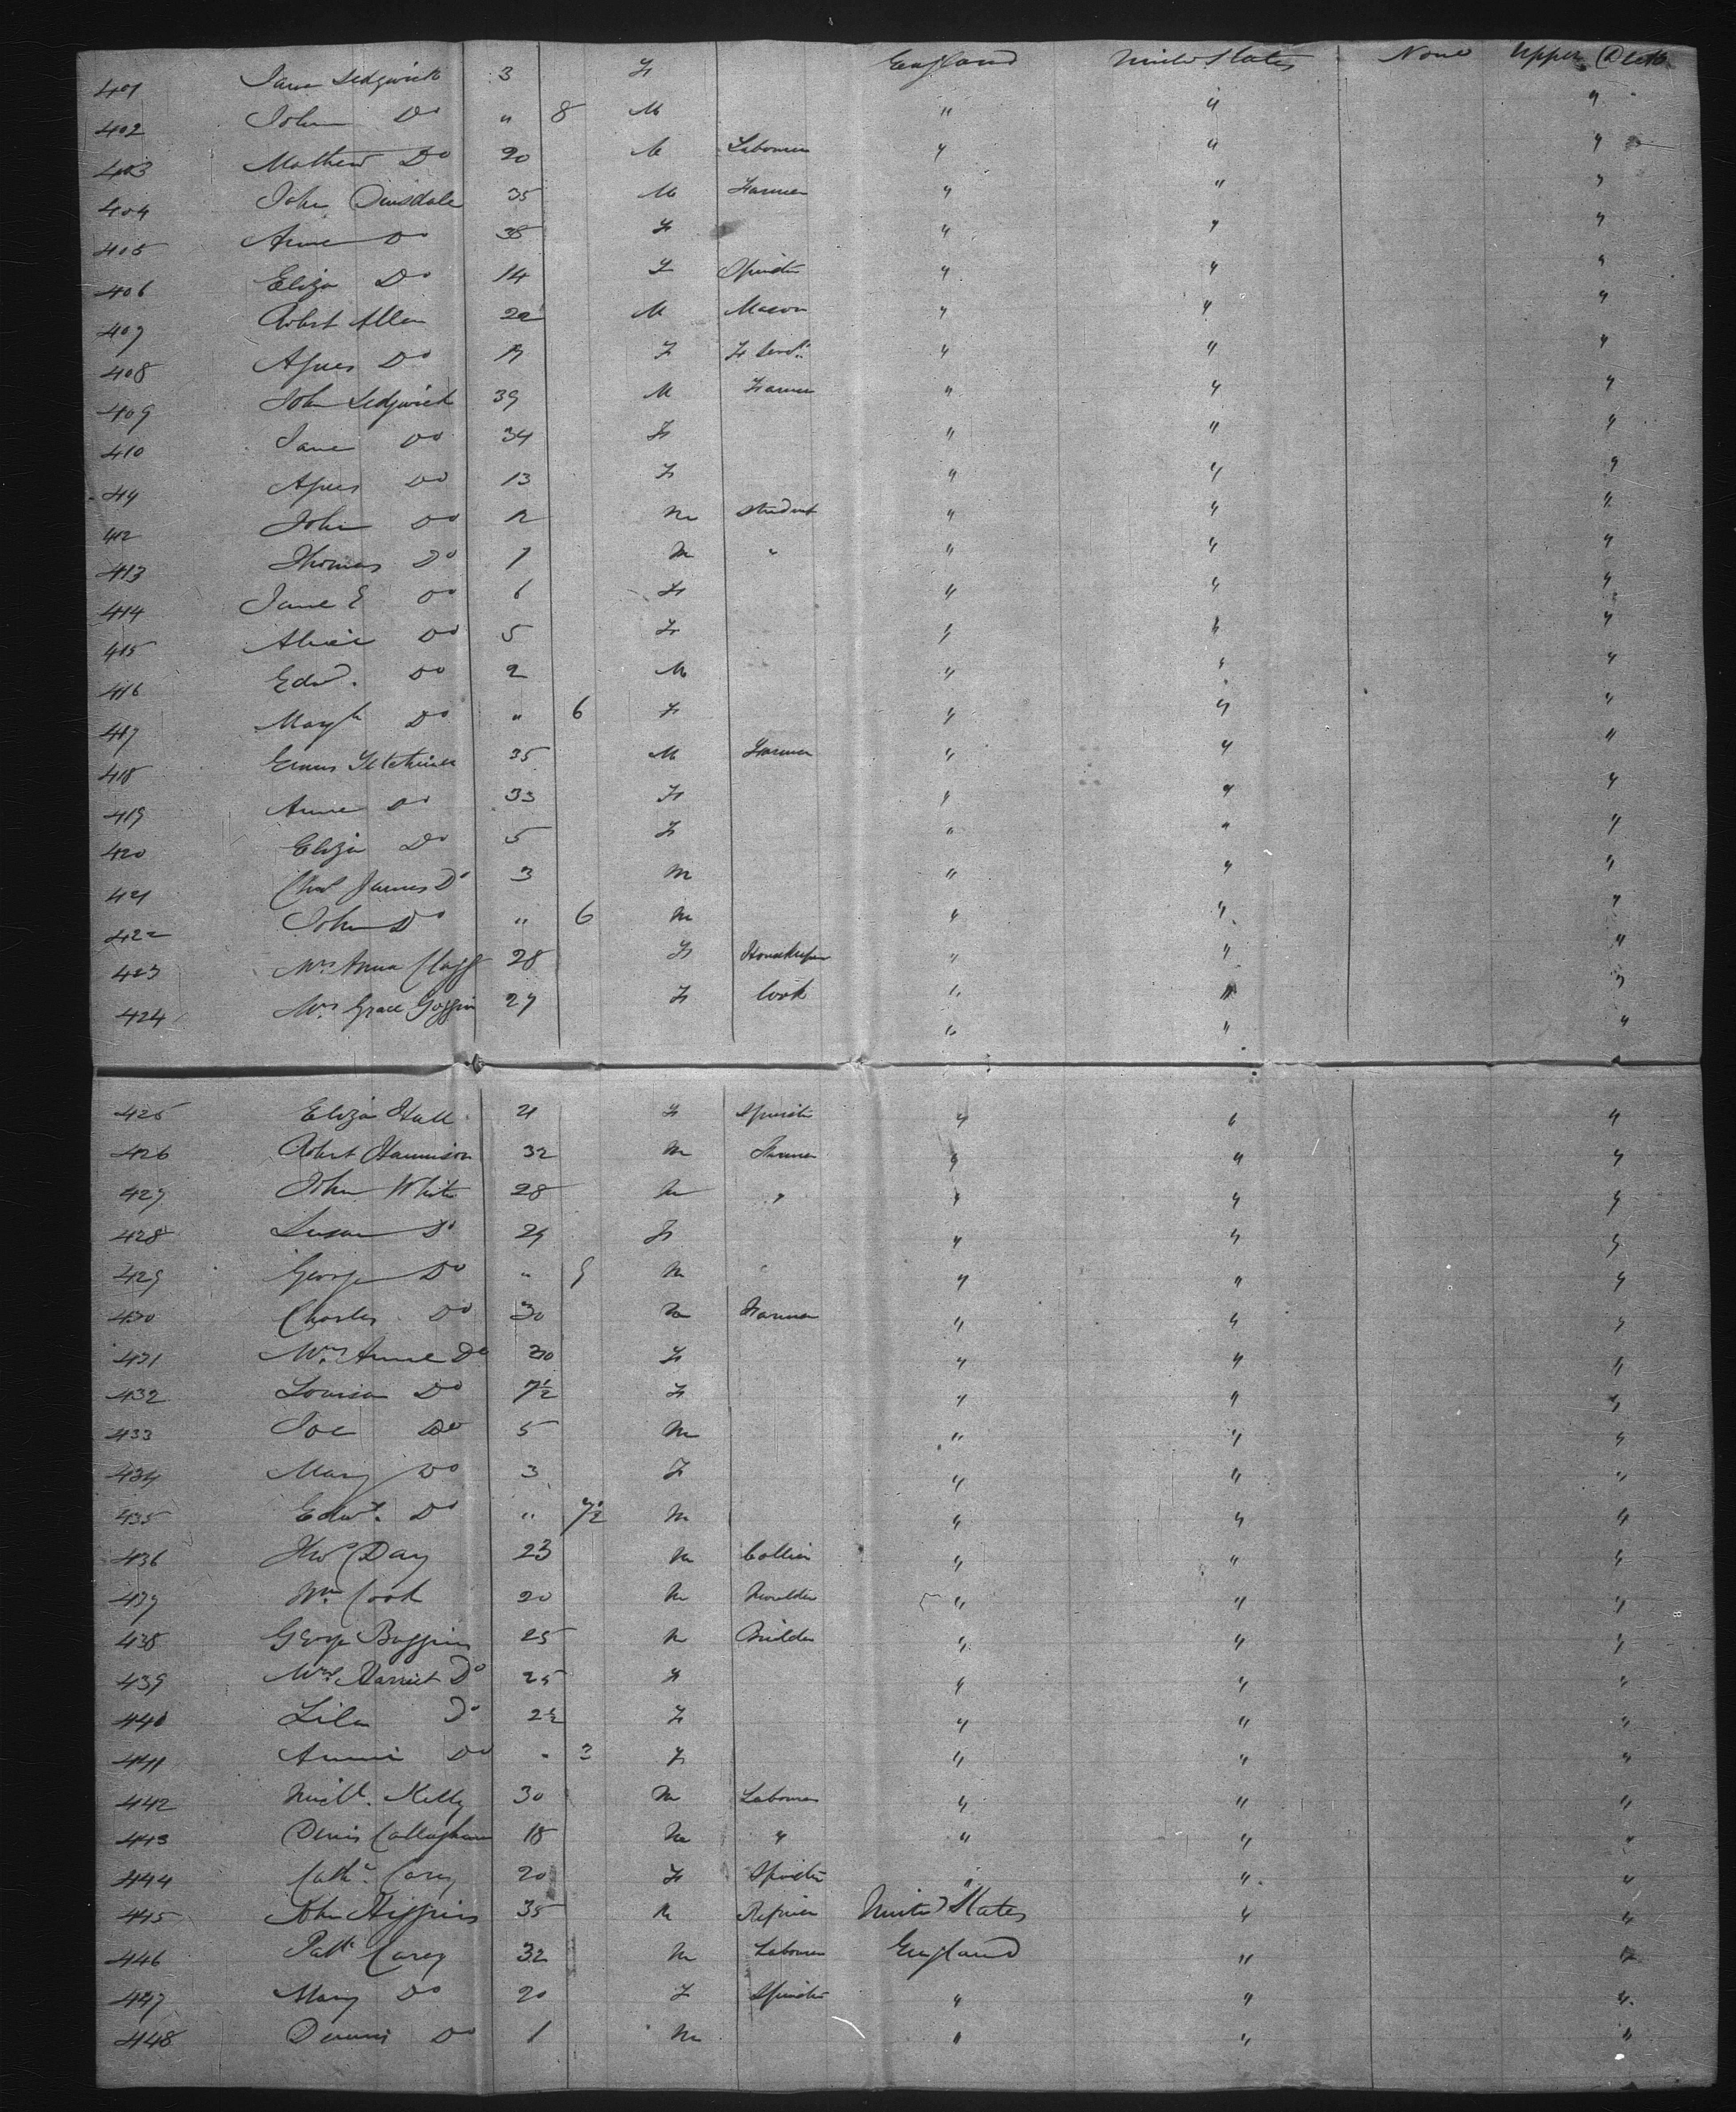 401 Jane Sedgwick 3 F England United States None Upper Deck
402 John Do " 8 M " " "
403 Mathew Do 20 M Labourer " " "
404 John Dinsdale 35 M Farmer " " "
405 Anne Do 38 F " " "
406 Eliza Do 14 F Spinster " " "
407 Robert Allen 22 M Mason " " "
408 Agnes Do 19 F F Servt " " "
409 John Sedgwick 39 M Farmer " " "
410 Jane Do 34 F " " "
411 Agnes Do 13 F " " "
412 John Do 12 M Student " " "
413 Thomas Do M " " " "
414 Jane E Do 6 F " " "
415 Alice Do 5 F " " "
416 Edwd. Do 2 M " " "
417 Do " 6 F " " "
418 35 M Farmer " " "
419 Anne Do 33 F " " "
420 Eliza Do 5 F " " "
421 Chas James Do 3 M " " "
422 John Do " 6 M " " "
423 Mrs Anna Clagg 28 F Housekeeper " " "
424 Mrs Grace Goggin 27 F Cook " " "
" " "
425 Eliza Hall 21 F Spinster " " "
426 Robert Harrison 32 M Farmer " " "
427 John White 28 M " " " "
428 Susan Do 29 F " " "
429 George Do " 9 M " " "
430 Charles Do 30 M Farmer " " "
431 Mrs Anne Do 30 F " " "
432 Louisa Do 7½ F " " "
433 Joe Do 5 M " " "
434 Mary Do 3 F " " "
435 Edwd. Do " 7½ M " " "
436 Thos Day 23 M Collier " " "
437 Wm Cook 20 M Moulder " " "
438 George Boggins 25 M Builder " " "
439 Mrs Harriet Do 25 F " " "
440 Lila Do 2½ F " " "
441 Annie Do " 3 F " " "
442 Michl. Kelly 30 M Labourer " " "
443 Denis Callaghan 18 M " " " "
444 Cathe. Carey 20 F Spinster " " "
445 John Higgins 35 M Refiner United States " "
446 Patk Carey 32 M Labourer England " "
447 Mary Do 20 F Spinster " " "
448 Dennis Do 1 M " " "